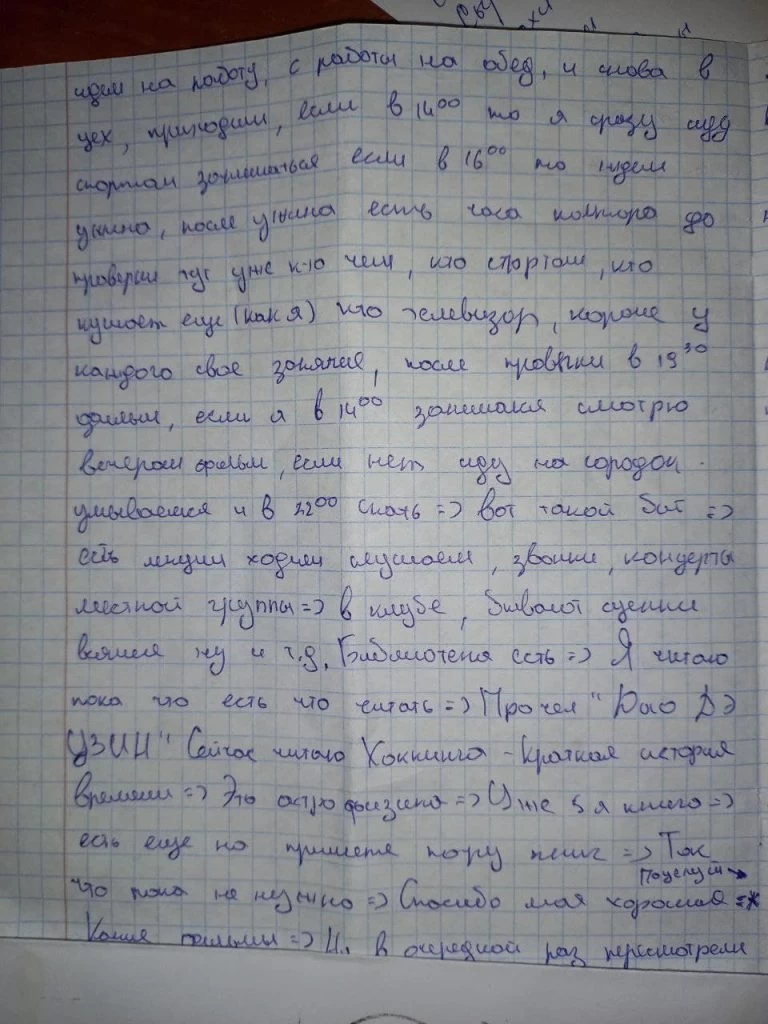 идем на работу, с работы на обед, и снова в
цех, приходим, если в 14⁰⁰ то я сразу иду
спортом заниматься если в 16⁰⁰ то идем
ужина, после ужина есть часа полтора до
проверки тут уже к-то чем, кто спортом, кто
кушает еще (как я) кто телевизор, короче у
каждого свое занятие, после проверки в 19³⁰
если я в 14⁰⁰ занимался смотрю
вечером фильм, если нет иду на городок.
умываемся и в 22⁰⁰ спать => вот такой быт =>
есть лекции ходим слушаем, звонки, концерты
местной группы => в клубе, бывают сценки
всякие ну и т.д. Библиотека есть => Я читаю
пока что есть что читать => Прочел "Дао ДЭ
ЦЗИН" Сейчас читаю Хоккинга - Краткая история
времени => Это астрофизика => Уже 5я книга =>
есть еще на примете пару книг => Так
Поцелуй →
что пока не нужно => Спасибо моя хорошая =*
Какие фильмы => в очередной раз пересмотрели